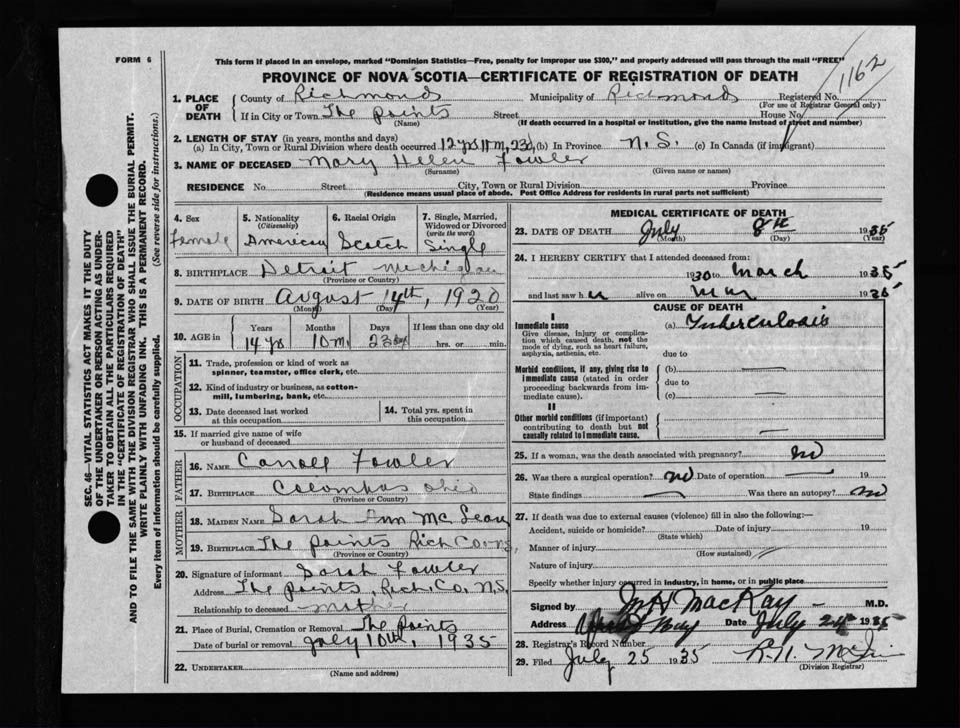 FORM 6
1162
This form if placed in an envelope, marked "Dominion Statistics—Free, penalty for improper use $300," and properly addressed will pass through the mail "FREE"
PROVINCE OF NOVA SCOTIA—CERTIFICATE OF REGISTRATION OF DEATH
1. PLACE OF DEATH
County of Richmond Municipality of Richmond Registered No.
(For use of Registrar General only)
If in City or Town The points Street House No.
(Name) (If death occurred in a hospital or institution, give the name instead of street and number)
2. LENGTH OF STAY (in years, months and days)
(a) In City, Town or Rural Division where death occurred 12 yrs 11 m, 23d, (b) In Province N. S. (c) In Canada (if immigrant)
3. NAME OF DECEASED Mary Helen Fowler
(Surname) (Given name or names)
RESIDENCE No Street City, Town or Rural Division Province
(Residence means usual place of abode. Post Office Address for residents in rural parts not sufficient)
4. Sex
Female
5. Nationality
(Citizenship)
American
6. Racial Origin
Scotch
7. Single, Married, Widowed or Divorced
(write the word)
Single
8. BIRTHPLACE Detroit Michigan
(Province or Country)
9. DATE OF BIRTH August 14th, 1920
(Month) (Day) (Year)
10. AGE in
Years Months Days If less than one day old
14 yrs 10 m. 23 days hrs. or min.
OCCUPATION
11. Trade, profession or kind of work as
spinner, teamster, office clerk, etc.
12. Kind of industry or business, as cotton-
mill, lumbering, bank, etc.
13. Date deceased last worked
at this occupation
14. Total yrs. spent in
this occupation
15. If married give name of wife
or husband of deceased
FATHER
16. NAME Carroll Fowler
17. BIRTHPLACE Columbus Ohio
(Province or Country)
MOTHER
18. MAIDEN NAME Sarah Ann McLean
19. BIRTHPLACE The points Rich Co N.S,
(Province or Country)
20. Signature of informant Sarah Fowler
Address The points, Rich. Co. N.S.
Relationship to deceased mother
21. Place of Burial, Cremation or Removal The Points
Date of burial or removal July 10th, 1935
22. UNDERTAKER
(Name and address)
MEDICAL CERTIFICATE OF DEATH
23. DATE OF DEATH July 8th 1935
(Month) (Day) (Year)
24. I HEREBY CERTIFY that I attended deceased from:
1930 to March 1935
and last saw her alive on Mar 1935
CAUSE OF DEATH
I
Immediate cause
Give disease, injury or complica-
tion which caused death, not the
mode of dying, such as heart failure,
asphyxia, asthenia, etc.
(a) Tuberculosis
due to
Morbid conditions, if any, giving rise to
immediate cause (stated in order
proceeding backwards from im-
mediate cause).
(b)
due to
(c)
II
Other morbid conditions (if important)
contributing to death but not
causally related to immediate cause.
25. If a woman, was the death associated with pregnancy? no
26. Was there a surgical operation? no Date of operation 19
State findings Was there an autopsy? no
27. If death was due to external causes (violence) fill in also the following:—
Accident, suicide or homicide? Date of injury 19
(State which)
Manner of injury
(How sustained)
Nature of injury
Specify whether injury occurred in industry, in home, or in public place
Signed by MacKay M.D.
Address Date July 24 1935
28. Registrar's Record Number
29. Filed July 25 1935
(Division Registrar)
SEC. 46—VITAL STATISTICS ACT MAKES IT THE DUTY
OF THE UNDERTAKER OR PERSON ACTING AS UNDER-
TAKER TO OBTAIN ALL THE PARTICULARS REQUIRED
IN THE "CERTIFICATE OF REGISTRATION OF DEATH"
AND TO FILE THE SAME WITH THE DIVISION REGISTRAR WHO SHALL ISSUE THE BURIAL PERMIT.
WRITE PLAINLY WITH UNFADING INK. THIS IS A PERMANENT RECORD.
Every item of information should be carefully supplied. (See reverse side for instructions.)